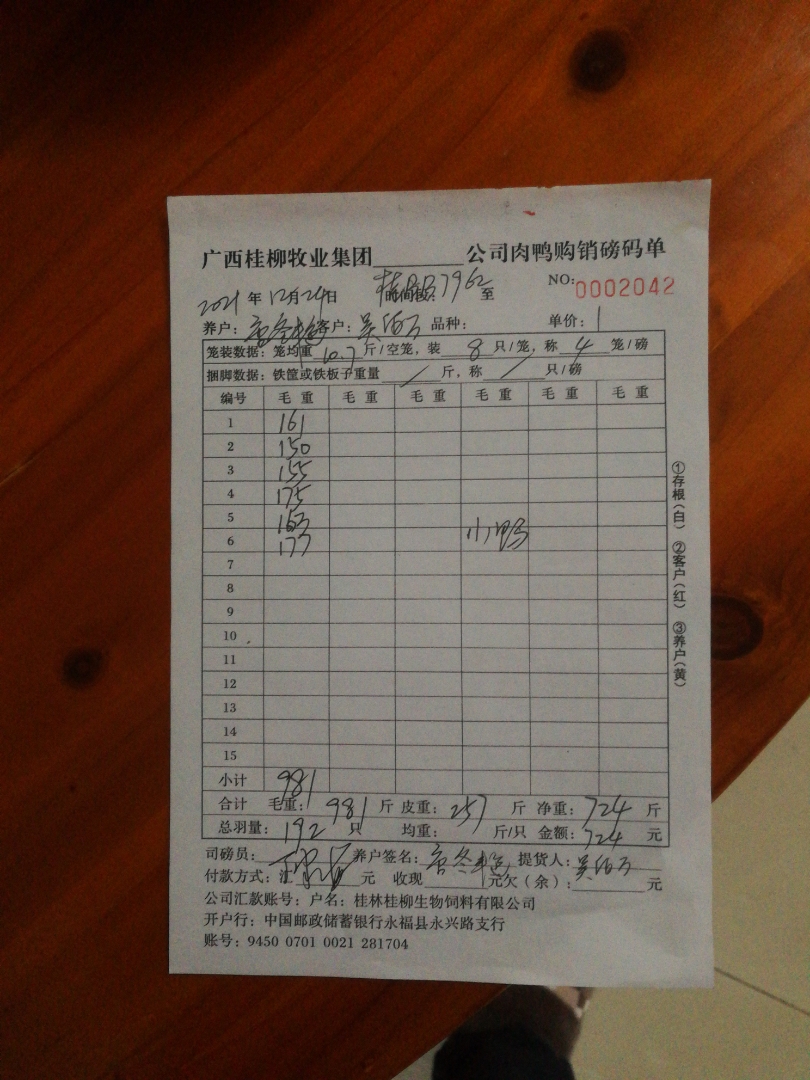 广西桂柳牧业集团________公司肉鸭购销磅码单
NO: 0002042
2021年12月24日 时间段: 7962 至
养户: 客户: 吴 品种: 单价: 1
笼装数据: 笼均重 10.7 斤/空笼, 装 8 只/笼, 称 4 笼/磅
捆脚数据: 铁筐或铁板子重量 / 斤, 称 / 只/磅
编号 毛重 毛重 毛重 毛重 毛重 毛重
1 161
2 150
3 155
4 175
5 163
6 177 小鸭
7
8
9
10
11
12
13
14
15
小计 981
合计 毛重: 981 斤 皮重: 257 斤 净重: 724 斤
总羽量: 192 只 均重: 斤/只 金额: 724 元
司磅员: 养户签名: 提货人: 吴
付款方式: 汇 元 收现 元欠(余): 元
公司汇款账号: 户名: 桂林桂柳生物饲料有限公司
开户行: 中国邮政储蓄银行永福县永兴路支行
账号: 9450 0701 0021 281704
①存根(白) ②客户(红) ③养户(黄)